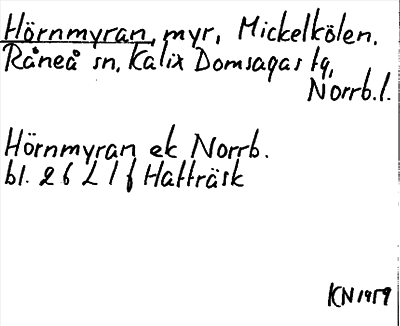 Hörnmyran, myr, Mickelkölen.
Råneå sn, Kalix Domsagas tg,
Norrb. l.
Hörnmyran ek Norrb.
bl. 26 L 1 f Hatträsk
KN 1959